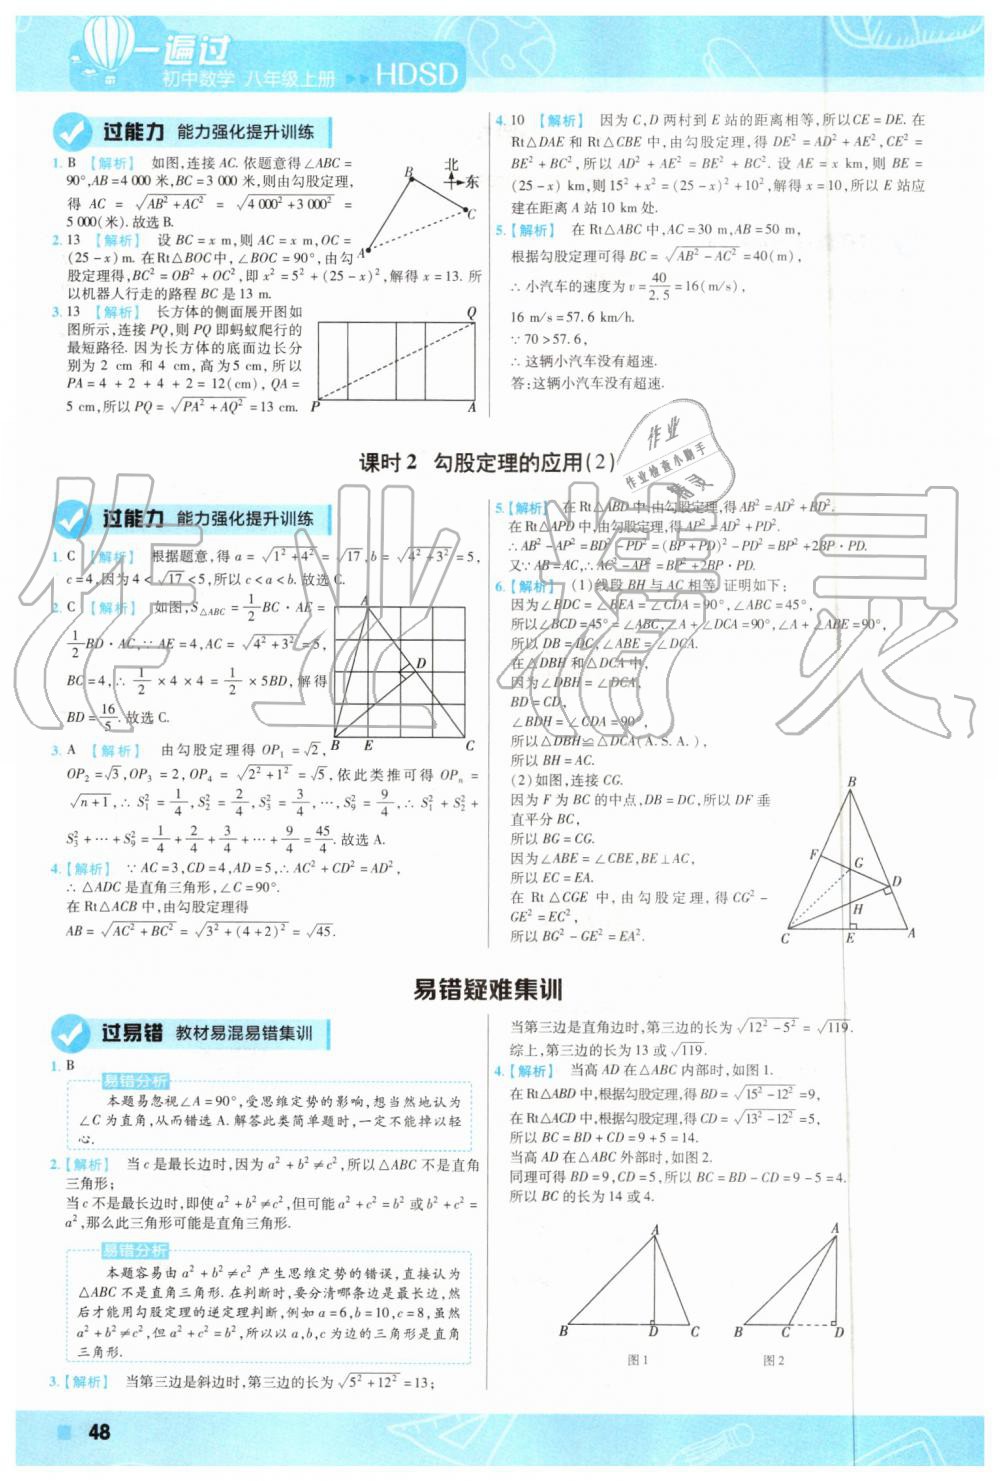 一遍过
初中数学 八年级上册 HDSD
过能力 能力强化提升训练
1. B 【解析】 如图,连接 AC. 依题意得∠ABC =
90°,AB=4 000 米,BC=3 000 米,则由勾股定理,
得 AC = √(AB²+AC²) = √(4 000²+3 000²) =
5 000(米). 故选 B.
北
东
B
C
A
2. 13 【解析】 设 BC = x m,则 AC = x m,OC =
(25 - x) m. 在 Rt△BOC 中,∠BOC = 90°,由勾
股定理得,BC² = OB² + OC²,即 x² = 5² + (25 - x)²,解得 x = 13. 所
以机器人行走的路程 BC 是 13 m.
3. 13 【解析】 长方体的侧面展开图如
图所示,连接 PQ,则 PQ 即蚂蚁爬行的
最短路径. 因为长方体的底面边长分
别为 2 cm 和 4 cm,高为 5 cm,所以
PA = 4 + 2 + 4 + 2 = 12(cm),QA =
5 cm,所以 PQ = √(PA²+AQ²) = 13 cm.
Q
P
A
4. 10 【解析】 因为 C,D 两村到 E 站的距离相等,所以 CE = DE. 在
Rt△DAE 和 Rt△CBE 中,由勾股定理,得 DE² = AD² + AE²,CE² =
BE² + BC²,所以 AD² + AE² = BE² + BC². 设 AE = x km,则 BE =
(25 - x) km,则 15² + x² = (25 - x)² + 10²,解得 x = 10,所以 E 站应
建在距离 A 站 10 km 处.
5.【解析】 在 Rt△ABC 中,AC = 30 m,AB = 50 m,
根据勾股定理可得 BC = √(AB² - AC²) = 40(m),
∴ 小汽车的速度为 v = 40/2.5 = 16(m/s),
16 m/s = 57.6 km/h.
∵ 70 > 57.6,
∴ 这辆小汽车没有超速.
答:这辆小汽车没有超速.
作业
作业检查小助手
课时2 勾股定理的应用(2)
过能力 能力强化提升训练
1. C 【解析】 根据题意,得 a = √(1²+4²) = √17,b = √(4²+3²) = 5,
c = 4,因为 4 < √17 < 5,所以 c < a < b. 故选 C.
2. C 【解析】 如图,S△ABC = 1/2 BC · AE =
1/2 BD · AC,∵ AE = 4,AC = √(4²+3²) = 5,
BC = 4,∴ 1/2 × 4 × 4 = 1/2 × 5BD,解得
BD = 16/5. 故选 C.
A
D
B E C
3. A 【解析】 由勾股定理得 OP₁ = √2,
OP₂ = √3,OP₃ = 2,OP₄ = √(2²+1²) = √5,依此类推可得 OPₙ =
√(n+1),∴ S₁² = 1/4,S₂² = 2/4,S₃² = 3/4,…,S₉² = 9/4,∴ S₁² + S₂² +
S₃² + … + S₉² = 1/4 + 2/4 + 3/4 + … + 9/4 = 45/4. 故选 A.
4.【解析】 ∵ AC = 3,CD = 4,AD = 5,∴ AC² + CD² = AD²,
∴ △ADC 是直角三角形,∠C = 90°.
在 Rt△ACB 中,由勾股定理得
AB = √(AC²+BC²) = √(3²+(4+2)²) = √45.
5.【解析】 在 Rt△ABD 中,由勾股定理,得 AB² = AD² + BD².
在 Rt△APD 中,由勾股定理,得 AP² = AD² + PD².
∴ AB² - AP² = BD² - PD² = (BP + PD)² - PD² = BP² + 2BP · PD.
又∵ AB = AC,∴ AC² - AP² = BP² + 2BP · PD.
6.【解析】 (1)线段 BH 与 AC 相等. 证明如下:
因为∠BDC = ∠BEA = ∠CDA = 90°,∠ABC = 45°,
所以∠BCD = 45° = ∠ABC,∠A + ∠DCA = 90°,∠A + ∠ABE = 90°,
所以 DB = DC,∠ABE = ∠DCA.
在△DBH 和△DCA 中,
因为∠DBH = ∠DCA,
BD = CD,
∠BDH = ∠CDA = 90°,
所以△DBH≌△DCA(A.S.A.),
所以 BH = AC.
(2)如图,连接 CG.
因为 F 为 BC 的中点,DB = DC,所以 DF 垂
直平分 BC,
所以 BG = CG.
因为∠ABE = ∠CBE,BE⊥AC,
所以 EC = EA.
在 Rt△CGE 中,由勾股定理,得 CG² -
GE² = EC²,
所以 BG² - GE² = EA².
B
F
G
D
H
C E A
作业精灵
易错疑难集训
过易错 教材易混易错集训
1. B
易错分析
本题易忽视∠A = 90°,受思维定势的影响,想当然地认为
∠C 为直角,从而错选 A. 解答此类简单题时,一定不能掉以轻
心.
2.【解析】 当 c 是最长边时,因为 a² + b² ≠ c²,所以△ABC 不是直角
三角形;
当 c 不是最长边时,即使 a² + b² ≠ c²,但可能 a² + c² = b² 或 b² + c² =
a²,那么此三角形可能是直角三角形.
易错分析
本题容易由 a² + b² ≠ c² 产生思维定势的错误,直接认为
△ABC 不是直角三角形. 在判断时,要分清哪条边是最长边,然
后才能用勾股定理的逆定理判断,例如 a = 6,b = 10,c = 8,虽然
a² + b² ≠ c²,但 a² + c² = b²,所以以 a,b,c 为边的三角形是直角
三角形.
3.【解析】 当第三边是斜边时,第三边的长为 √(5²+12²) = 13;
当第三边是直角边时,第三边的长为 √(12² - 5²) = √119.
综上,第三边的长为 13 或 √119.
4.【解析】 当高 AD 在△ABC 内部时,如图 1.
在 Rt△ABD 中,根据勾股定理,得 BD = √(15² - 12²) = 9,
在 Rt△ACD 中,根据勾股定理,得 CD = √(13² - 12²) = 5,
所以 BC = BD + CD = 9 + 5 = 14.
当高 AD 在△ABC 外部时,如图 2.
同理可得 BD = 9,CD = 5,所以 BC = BD - CD = 9 - 5 = 4.
所以 BC 的长为 14 或 4.
A
B D C
图 1
A
B C D
图 2
48